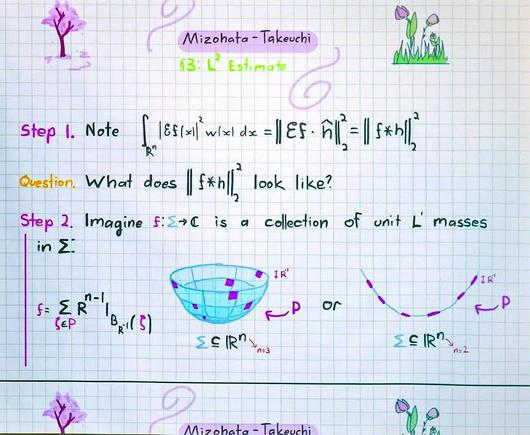 Mizohata-Takeuchi
§3: L² Estimate
Step 1. Note ∫_{ℝⁿ} |Ɛf(x)|² w(x) dx = ‖Ɛf · ĥ‖₂² = ‖f*h‖₂²
Question. What does ‖f*h‖₂² look like?
Step 2. Imagine f:Σ→ℂ is a collection of unit L¹ masses
in Σ:
f = Σ_{ζ∈P} R^{n-1} 1_{B_{R^{-1}}(ζ)}
R⁻¹
P
Σ ⊆ ℝⁿ
n=3
or
R⁻¹
P
Σ ⊆ ℝⁿ
n=2
Mizohata-Takeuchi